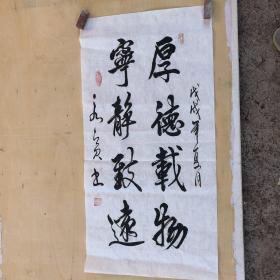 戊戌年夏月
厚德載物
寧靜致遠